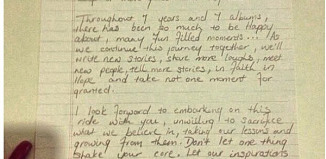 Throughout 7 years and 7 albums,
there has been so much to be happy
about, many fun filled moments... As
we continue this journey together, we'll
write new stories, share more laughs, meet
new people, tell more stories, in faith in
Hope and take not one moment for
granted.
I look forward to embarking on this
ride with you, unwilling to sacrifice
what we believe in, taking our lessons and
growing from them. Don't let one thing
shake your core. Let our inspirations